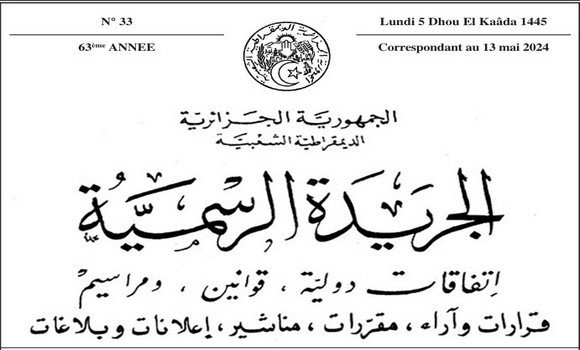 N° 33
Lundi 5 Dhou El Kaâda 1445
63ème ANNEE
Correspondant au 13 mai 2024
الجمهورية الجزائرية
الديمقراطية الشعبية
الجريدة الرسمية
إتفاقات دولية ، قوانين ، ومراسيم
قرارات وآراء ، مقررات ، مناشير ، إعلانات وبلاغات